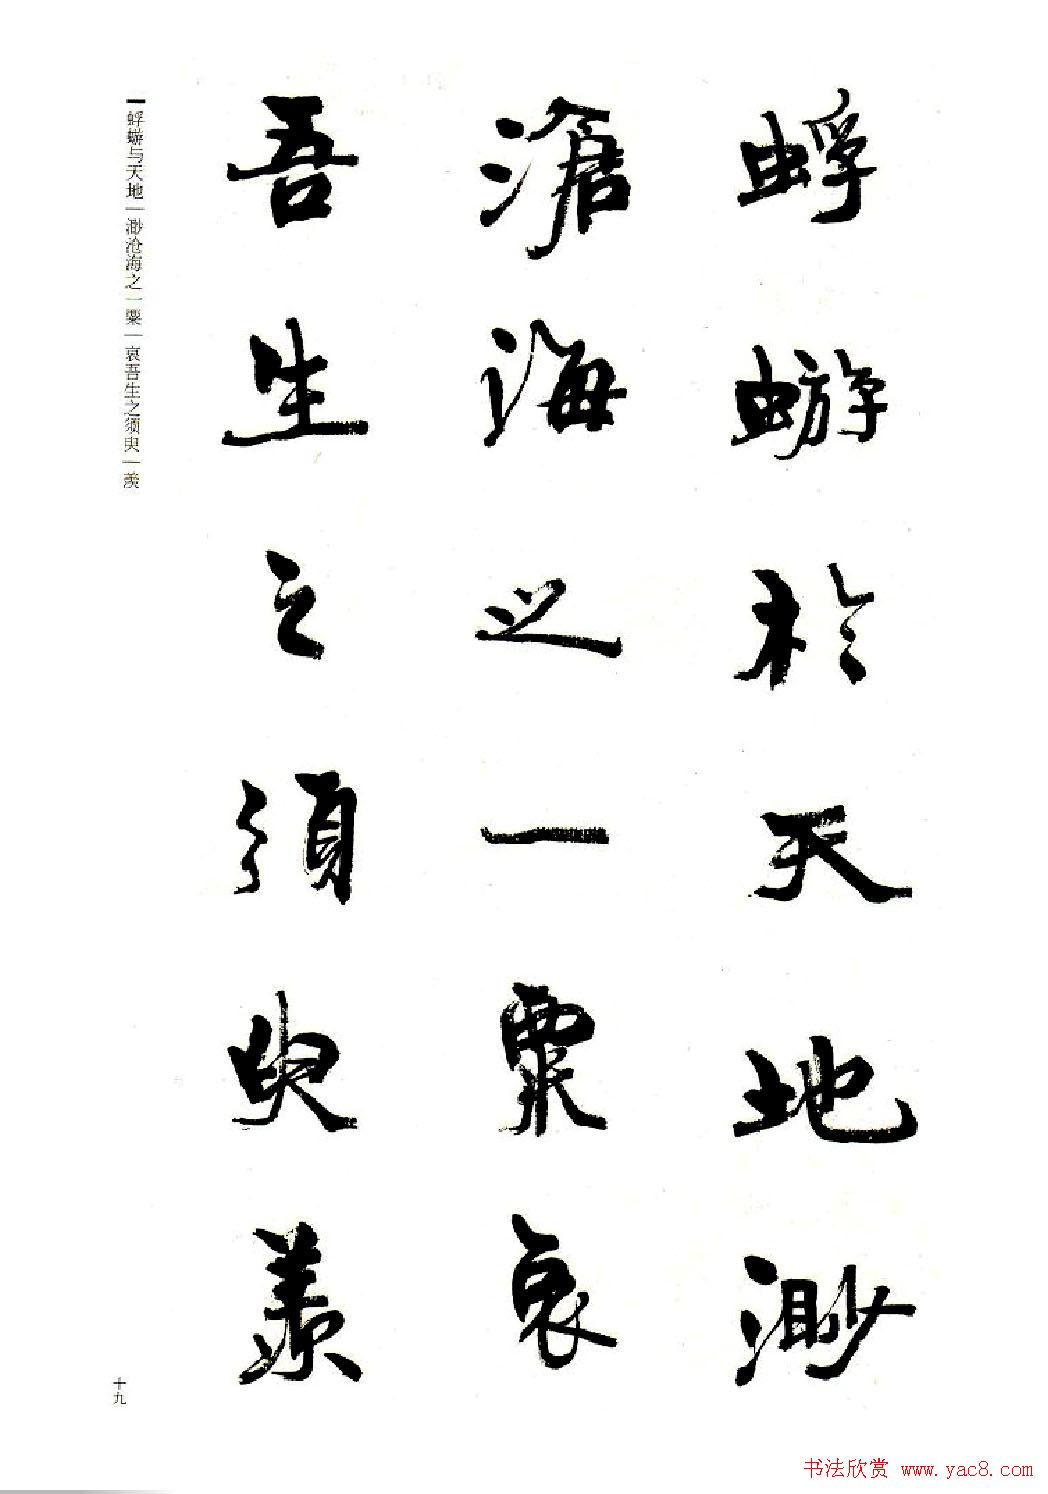 蜉蝣於天地渺
滄海之一粟哀
吾生之須臾羡
蜉蝣与天地|渺沧海之一粟|哀吾生之须臾|羡
十九
书法欣赏 www.yac8.com